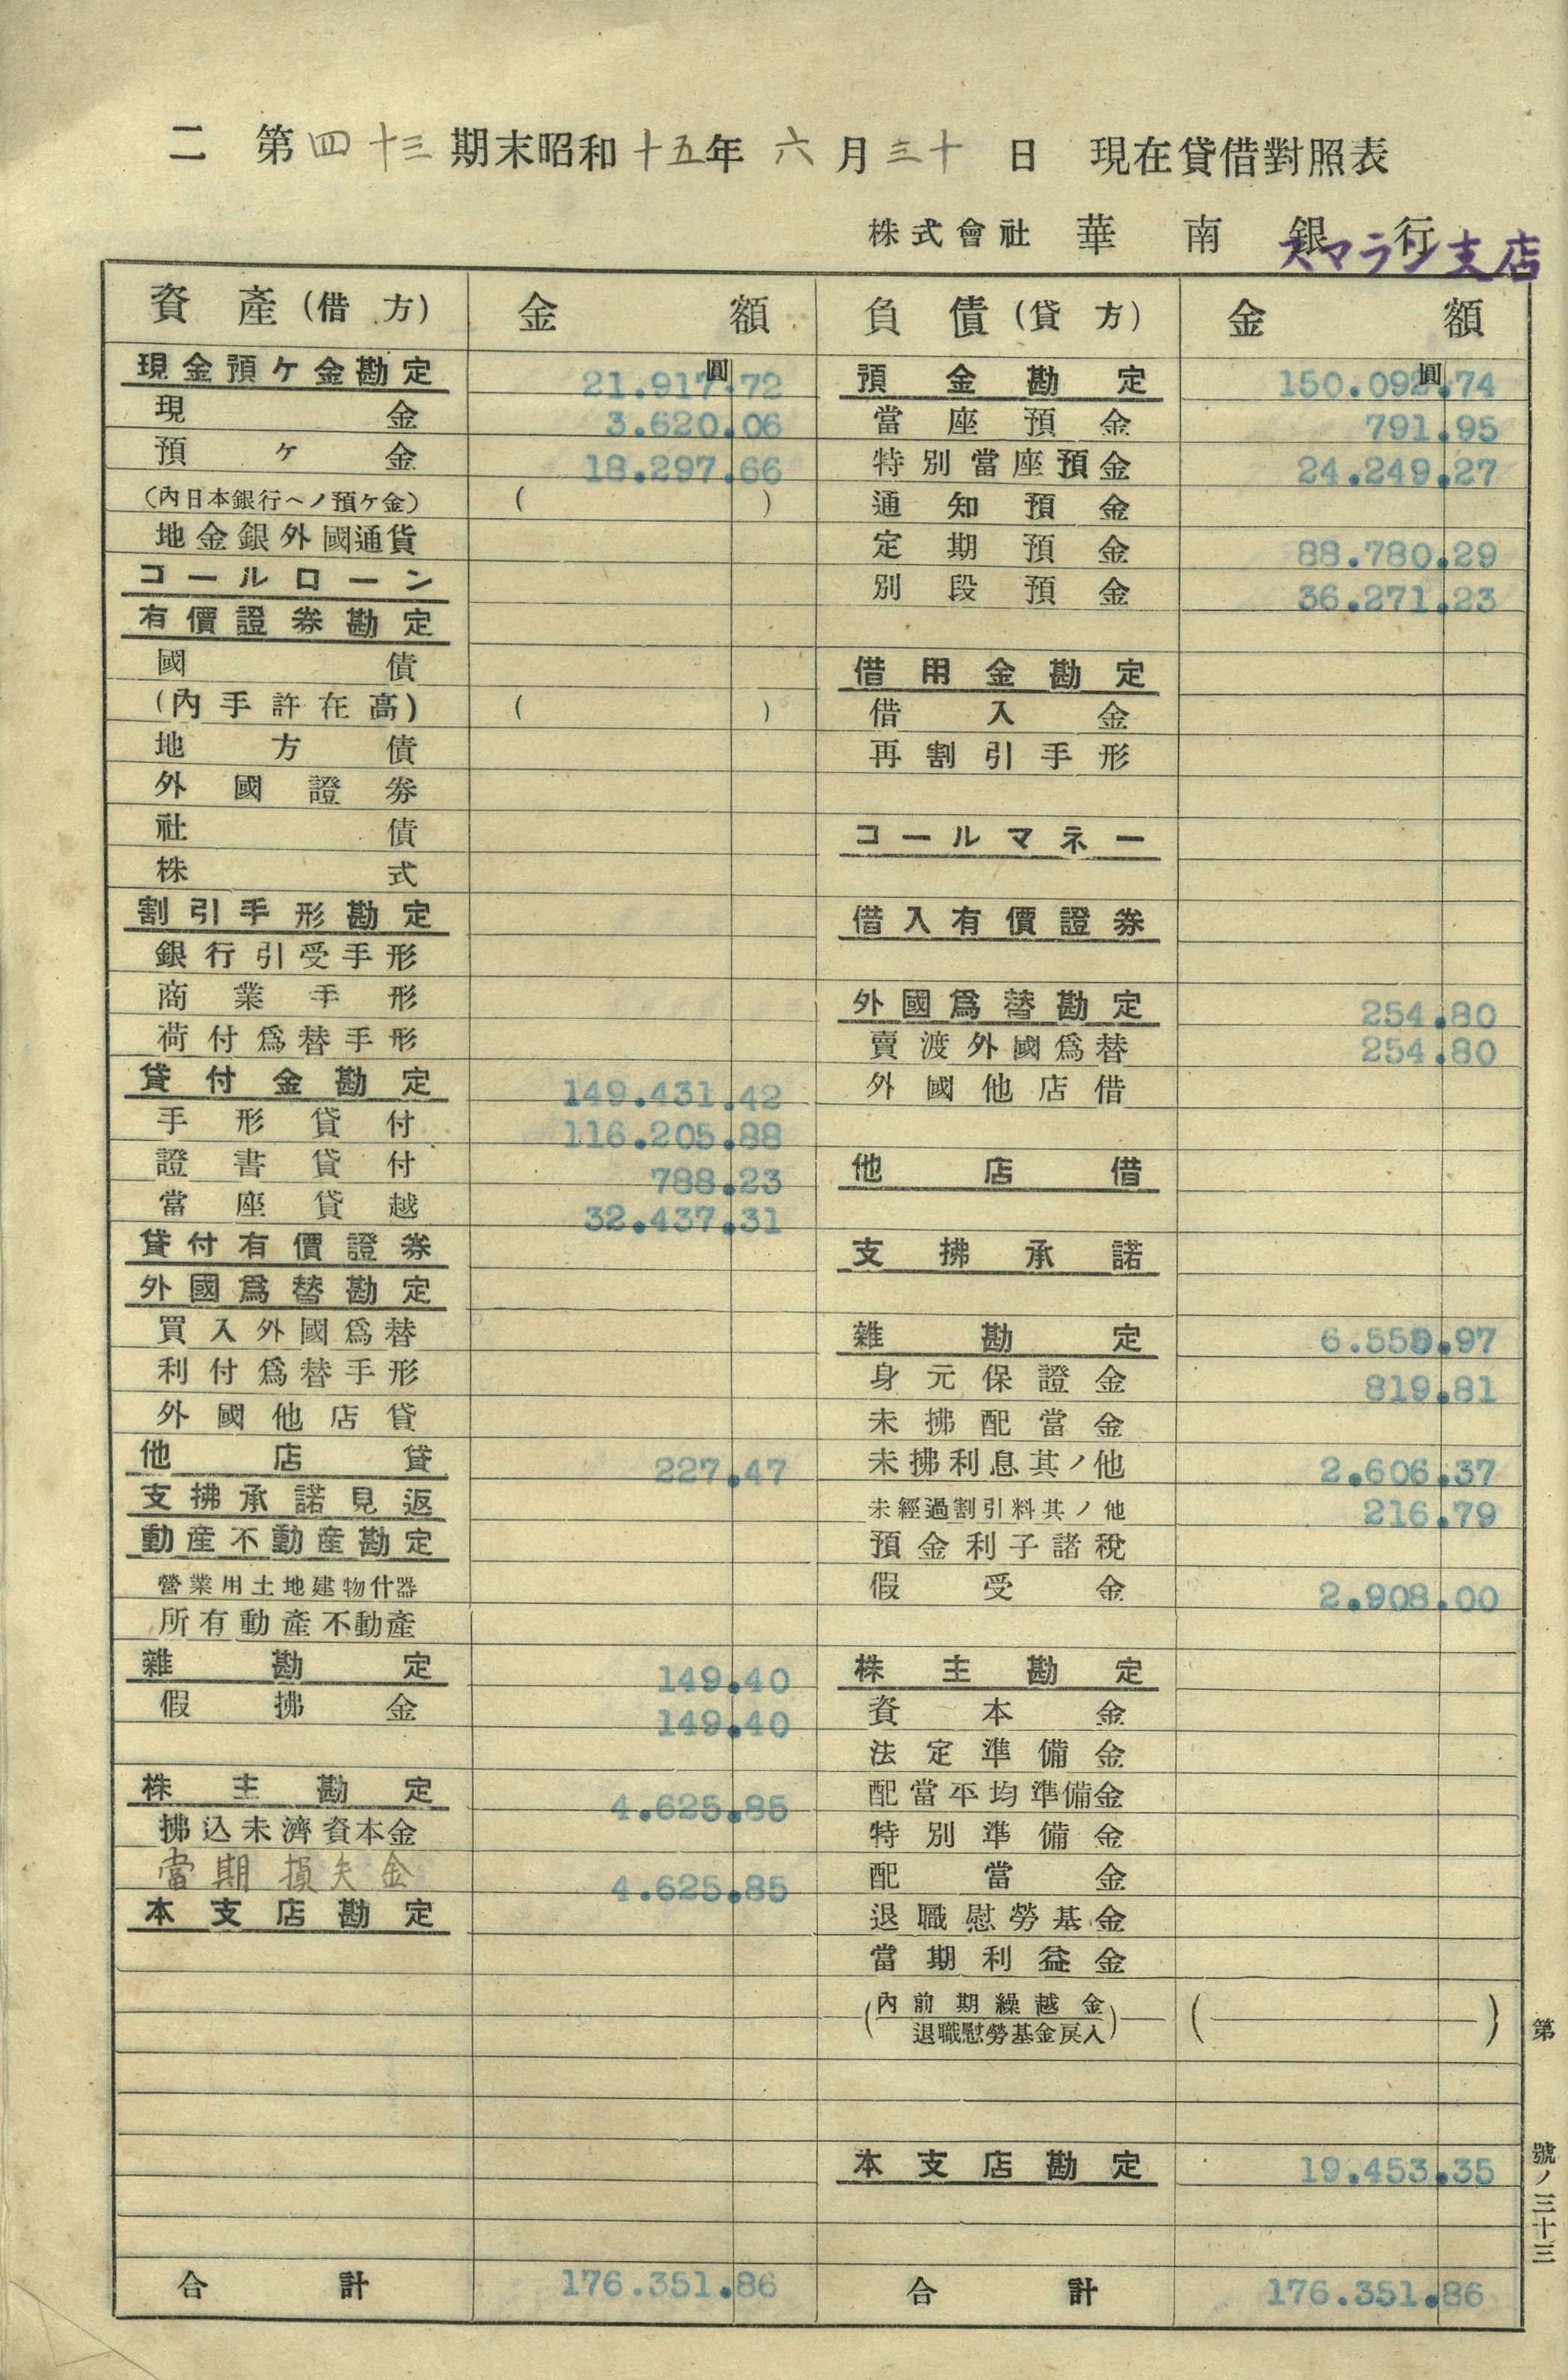 二 第四十三期末昭和十五年六月三十日 現在貸借對照表
株式會社 華南銀行
スマラン支店
資產(借方) 金額
圓
現金預ケ金勘定 21.917.72
現金 3.620.06
預ケ金 18.297.66
(內日本銀行ヘノ預ケ金) ( )
地金銀外國通貨
コールローン
有價證券勘定
國債
(內手許在高) ( )
地方債
外國證券
社債
株式
割引手形勘定
銀行引受手形
商業手形
荷付爲替手形
貸付金勘定 149.431.42
手形貸付 116.205.88
證書貸付 788.23
當座貸越 32.437.31
貸付有價證券
外國爲替勘定
買入外國爲替
利付爲替手形
外國他店貸
他店貸 227.47
支拂承諾見返
動產不動產勘定
營業用土地建物什器
所有動產不動產
雜勘定 149.40
假拂金 149.40
株主勘定 4.625.85
拂込未濟資本金
當期損失金 4.625.85
本支店勘定
合計 176.351.86
負債(貸方) 金額
圓
預金勘定 150.092.74
當座預金 791.95
特別當座預金 24.249.27
通知預金
定期預金 88.780.29
別段預金 36.271.23
借用金勘定
借入金
再割引手形
コールマネー
借入有價證券
外國爲替勘定 254.80
賣渡外國爲替 254.80
外國他店借
他店借
支拂承諾
雜勘定 6.550.97
身元保證金 819.81
未拂配當金
未拂利息其ノ他 2.606.37
未經過割引料其ノ他 216.79
預金利子諸稅
假受金 2.908.00
株主勘定
資本金
法定準備金
配當平均準備金
特別準備金
配當金
退職慰勞基金
當期利益金
(內前期繰越金 ( )
退職慰勞基金戾入)
本支店勘定 19.453.35
合計 176.351.86
第 號ノ三十三